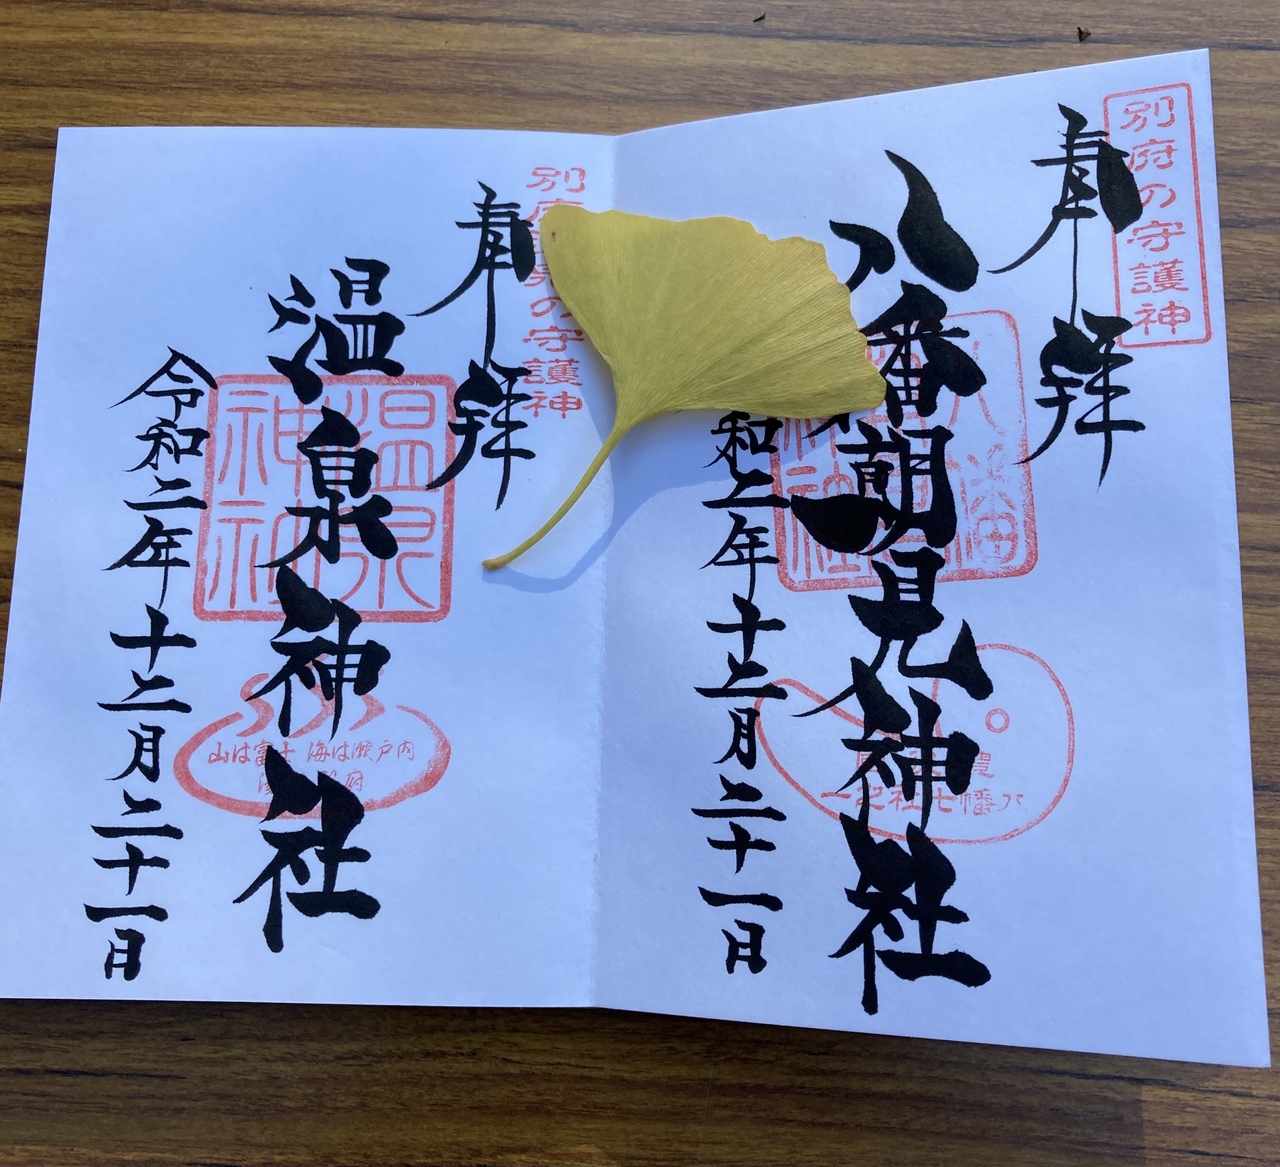 別府の守護神
奉拝
八幡朝見神社
和二年十二月二十一日
八幡七社之一
別府温泉の守護神
奉拝
温泉神社
温泉神社
山は富士 海は瀬戸内
令和二年十二月二十一日